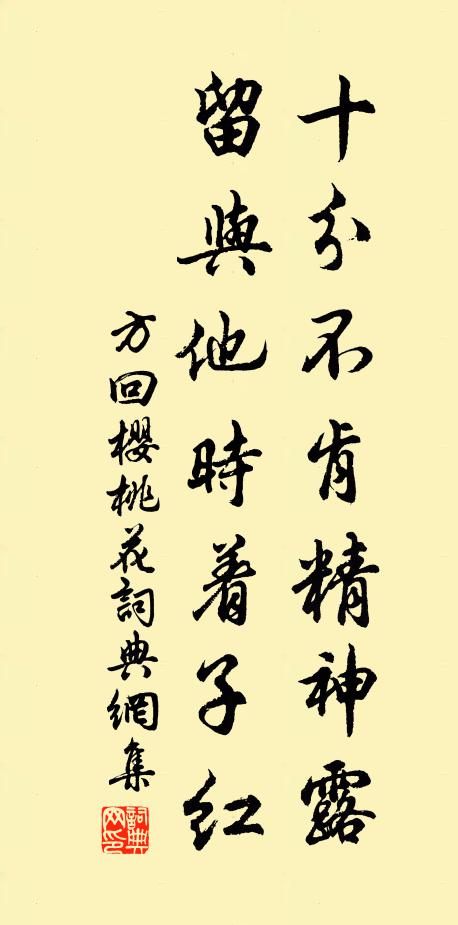 十分不肯精神露
留與他時着子紅
方回櫻桃花詞典網集
詞典
网印